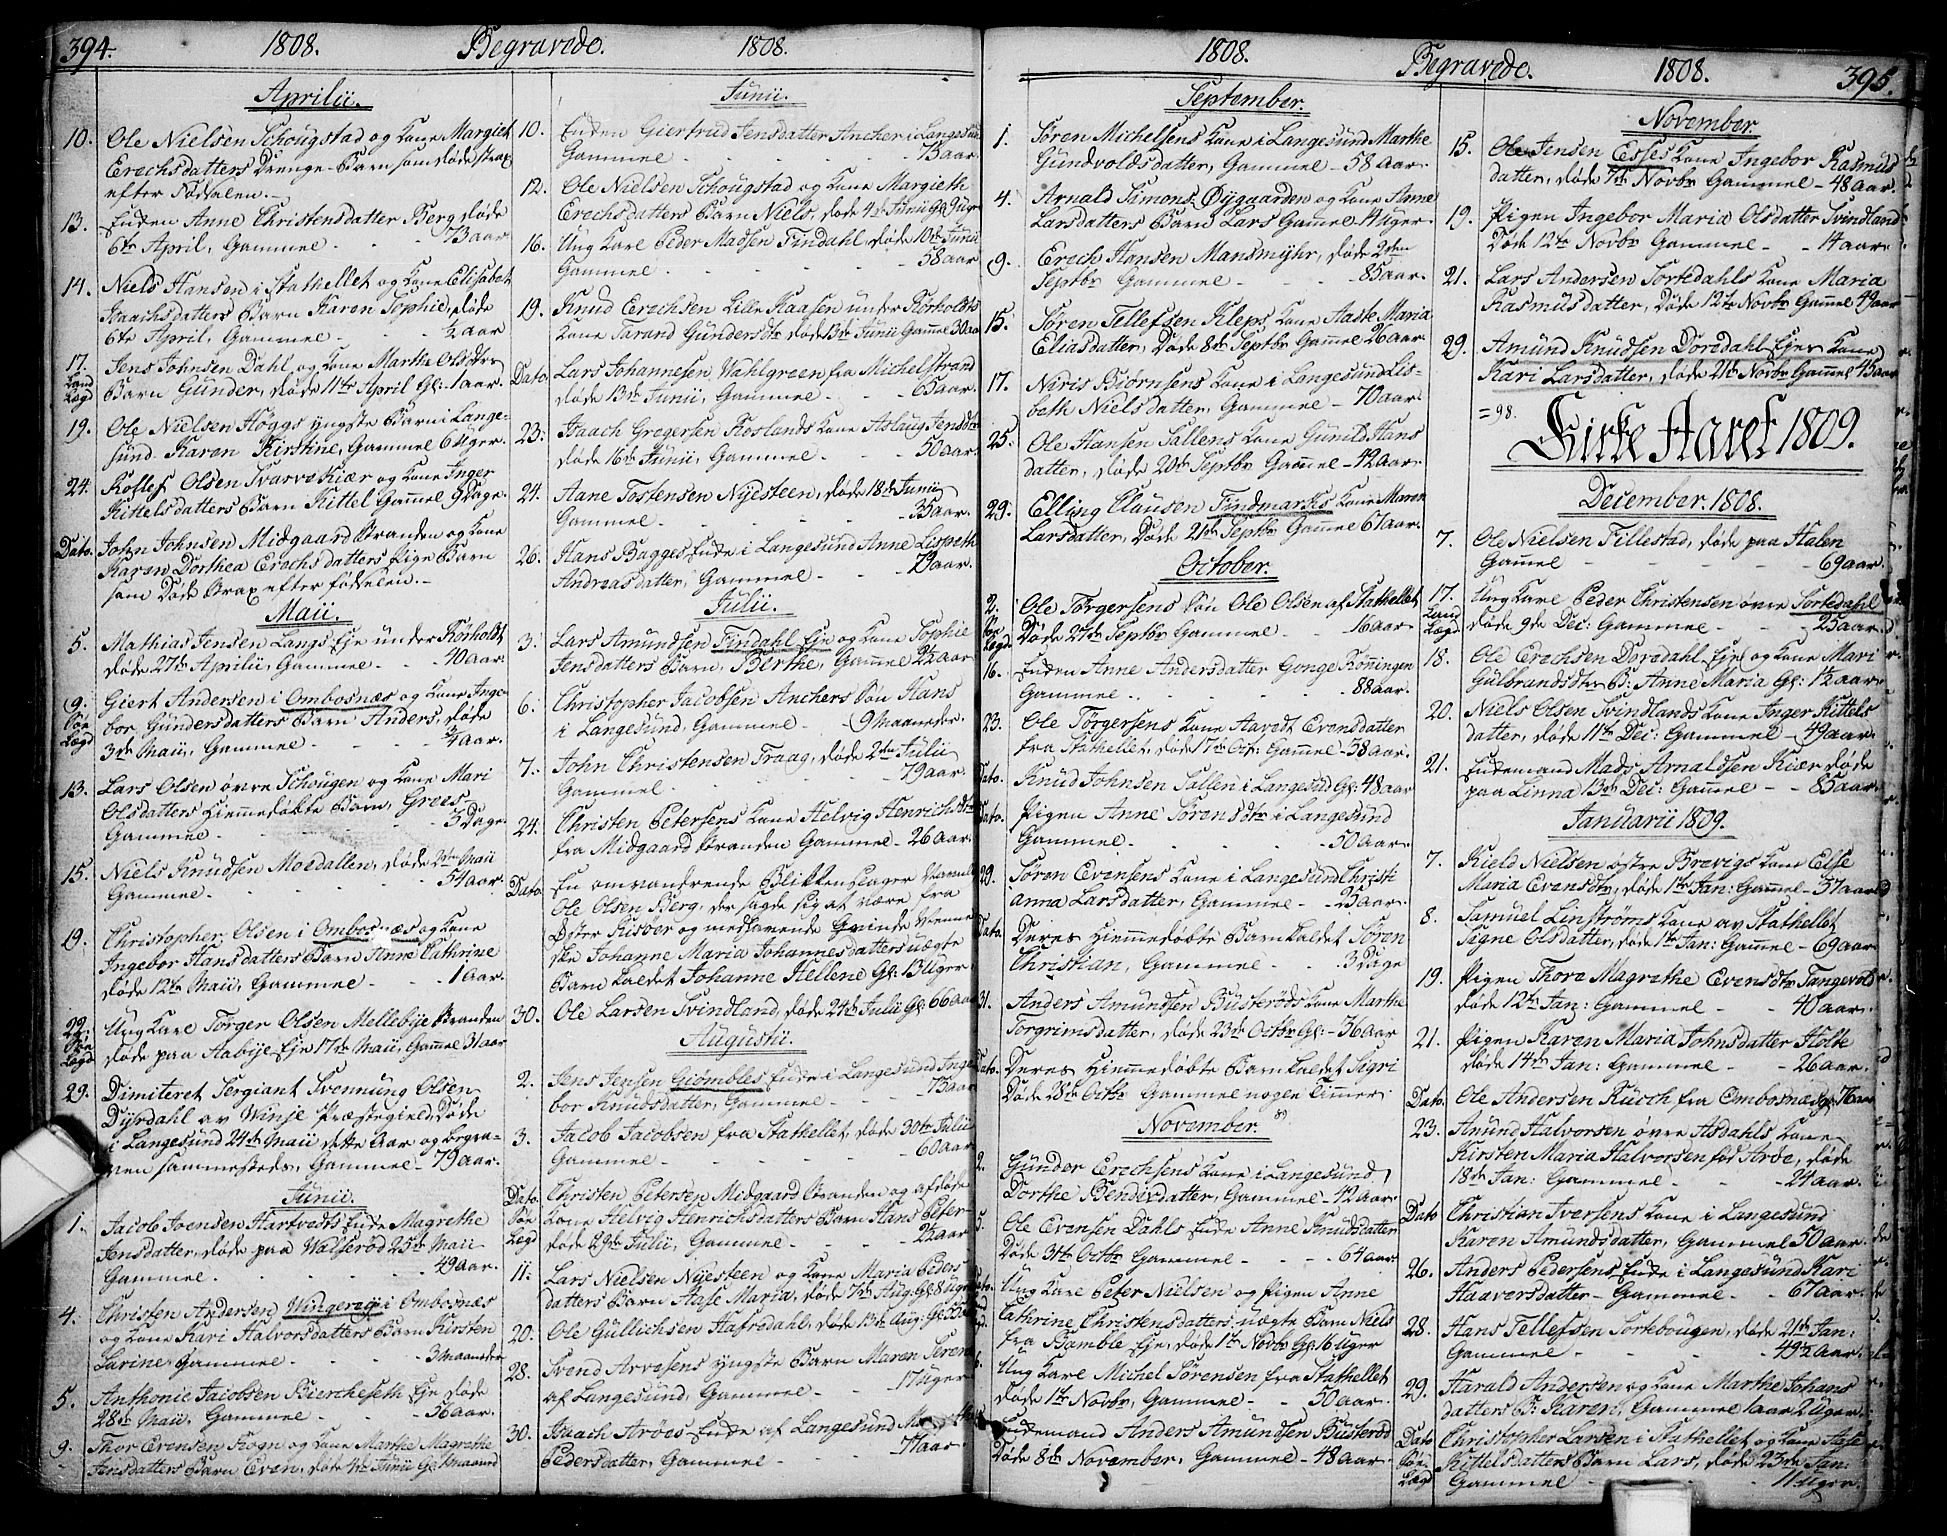 394. 1808. Begravede. 1808.
Aprilii.
10. Ole Nielsen Schougstad og Kone Margiet
Erechsdatters Drenge-Barn som døde strax
efter Fødselen.-
13. Enken Anne Christensdatter Berg døde
6te April, Gammel - - 73 aar.
14. Niels Hansen i Stathellet og Kone Elisabet
Isaachsdatters Barn Karen Sophie, døde
6te April, Gammel - ½ aar
17. Jens Johnsen Dahl, og Kone Marthe Olsdtrs
Land Lægd Barn Gunder, døde 11te April Gl: 1 aar.
19. Ole Nielsen Høggs yngste Barn i Lange-
sund. Karen Kirstine, Gammel 6 Uger.
24. Rollef Olsen Tvarvs Kiær og Kone Inger
Kittelsdatters Barn Kittel Gamel 9 Dage.
Dato. John Johnsen Midgaard Stranden og Kone
Karen Dorthea Erechsdatters Pige Barn
som Døde Strax efter fødselen.-
Maii.
5. Mathias Jensen Langs Eje under Rørholdt
døde 27de Aprilii, Gammel - 40 aar.
9. Giert Andersen i Ombosnæs og Kone Inge-
Søe Lægd bor Gundersdatters Barn Anders, døde
3de Maii, Gammel - - ¾ aar.
13. Lars Olsen øvre Schougen og Kone Mari
Olsdatters Hiemmedøbte Barn, Grees
Gammel - - - 3 Dage.
15. Niels Knudsen Moedallen, døde Maii
Gammel. - - - 54 aar.
19. Christopher Olsen i Ombosnæs og Kone
Ingebor Hansdatters Barn Anne Cathrine
døde 12te Maii, Gammel - - 1 aar.
22. Ung Karl Tørger Olsen Mellebye Stranden
Søe Lægd døde paa Aabye Eje 17de Maii, Gamel 31 aar
29. Dimiteret Sergiant Svennung Olsen
Dyrdahl av Winje Præstegield, Døde
i Langesund 24de Maii dette Aar og begra-
ven sammesteds, Gammel - 79 aar.
Junii.
1. Jacob Joensen Hartvedts Enke Magrethe
Jensdatter, døde paa Walserød 25de Maii
Gammel. - - - 49 aar.
4. Christen Andersen Wingereji i Ombosnæs
og Kone Kari Halvorsdatters Barn Kirsten
Larine Gammel - - 3 Maaneder
5. Anthonie Jacobsen Biercheseth Eje døde
28de Maii, Gammel - - 56 aar.
9. Thor Evensen Frogn og Kone Marthe Magrethe
Jensdatters Barn Even, døde 4de Junii Gl: Maaned
Junii.
10. Enken Giertrud Jensdatter Ancher i Langesund
Gammel - - - 73 aar.
12. Ole Nielsen Schougstad og Kone Margieth
Erechsdatters Barn Niels, døde 4de Junii Gl: 9 Uger
16. Ung Karl Peder Madsen Findahl, døde 10de Junii
Gammel. - - - 58 aar
19. Knud Erechsen Lille Kaasen under Rørholdts
Kone Tarand Gundersdtr døde 13de Junii Gamel 30 aar
Dato. Lars Johannesen Vahlgreen fra Michelstrand
døde 13de Junii, Gammel - - 65 aar.
23. Isaach Gregersen Roslands Kone Aslaug Jensdtr
døde 16de Junii, Gammel - - 50 aar.
24. Aane Tostensen Nyesteen, døde 18de Junii
Gammel - - - 35 aar.
26. Hans Bagges Enke i Langesund Anne Lispeth
Andreasdatter, Gammel - - 79 aar.
Julii.
3. Lars Amundsen Findahl Eje og Kone Sophie
Jensdatters Barn, Berthe, Gammel 2½ aar
6. Christopher Jacobsen Anchers Søn Hans
i Langesund, Gammel - 9 Maaneder.
7. John Christensen Traag, døde 2den Julii
Gammel - - - 79 aar.
24. Christen Petersens Kone Helvig Henrichsdtr
fra Midgaard Stranden Gammel - 26 aar.
Dato. En omvandrende Blikkenslager Navnl.
Ole Olsen Berg, der sagde sig at være fra
Øster Riisøer og medførende Qvinde Menne-
ske Johanne Maria Johannesdatters uægte
Barn kaldet Johanne Hellene Gl: 13 Uger.
30. Ole Larsen Svindland, døde 24de Julii Gl: 66 aar
Augustii.
2. Jens Jensen Giømbles Enke i Langesund Inge-
bor Knudsdatter, Gammel - - 73 aar
3. Jacob Jacobsen fra Stathellet, døde 30te Julii
Gammel - - - 60 aar
Dato. Christen Petersen Midgaard Stranden og afdøde
Søe Lægd Kone Helvig Henrichsdatters Barn Hans Peter
døde 29de Julii, Gammel - - 2½ aar.
11. Lars Nielsen Nyesteen og Kone Maria Peders-
datters Barn Aase Maria, døde 7de Aug: Gl: 8 Uger
20. Ole Gullichsen Hafsdahl, døde 13de Aug: Gl:
28. Svend Arvesens yngste Barn Maren Serene
af Langesund, Gammel - - 17 Uger
30. Isaach Arøes Enke af Langesund
Pedersdatter, Gammel - - 71 aar.
1808. Begravede. 1808. 395.
September.
1. Søren Michelsens Kone i Langesund Marthe
Gundvoldsdatter, Gammel - 58 aar.
4. Arnald Simons. Øygaarden og Kone Anne
Larsdatters Barn Lars Gamel 4 Uger.
9. Erech Hansen Mansmyhr, døde 2den
Septbr Gammel - - 85 aar.
15. Søren Tellefsen Kleps Kone Aaste Maria
Eliasdatter, Døde 8de Septbr Gamel 26 aar.
17. Neris Biørnsens Kone i Langesund Lis-
beth Nielsdatter, Gammel - 70 aar.
25. Ole Hansen Sallens Kone Gunild Hans
datter, døde 20de Septbr Gamel - 42 aar.
29. Elling Clausen Findmarkes Kone Maren
Larsdatter, Døde 21de Septbr Gamel 67 aar.
October.
2. Ole Tørgersens Søn Ole Olsen af Stathellet
Søe Lægd Døde 27de Septbr Gammel - - 16 aar.
16. Enken Anne Andersdatter Gonge Køningen
Gammel - - - 88 aar.
23. Ole Tørgersens Kone Aavedt Evensdatter
fra Stathellet, døde 17de Oct: Gamel - 38 aar.
Dato. Knud Johnsen Sallen i Langesund Gl: 48 aar
Dato. Pigen Anne Sørensdtr i Langesund
Gammel - - - 50 aar.
29. Søren Evensens Kone i Langesund Christi
anna Larsdatter, Gammel - 25 aar.
Dato. Deres Hiemmedøbte Barn kaldet Søren
Christian, Gammel - - 3 Dage
31. Anders Amundsen Busterøds Kone Marthe
Torgrimsdatter, døde 23de Octbr Gl: - 36 aar
Dato. Deres Hiemmedøbte Barn kaldet Sigri
Døde 28de Octbr Gammel nogen Timer
November.
2. Gunder Erechsens Kone i Langesund
Dorthe Bendixdatter, Gammel - 42 aar
5. Ole Evensen Dahls Enke Anne Knudsdatter
Døde 31te Octbr Gammel - - 64 aar
Dato. Ung Karl Peter Nielsen og Pigen Anne
Cathrine Christensdatters uægte Barn Niels
fra Bamble Eje, døde 1te Novbr Gl: 16 Uger
6. Ung Karl Michel Sørensen fra Stathellet
døde 1te Novbr, Gammel - - 50 aar.
Enkemand Anders Amundsen Busterød
Døde 8de November, Gammel - 48 aar.
November
15. Ole Jensen Esses Kone Ingebor Rasmus
datter, døde 7de Novbr Gammel - 48 aar.
19. Pigen Ingebor Maria Olsdatter Svindland
Døde 12te Novbr Gammel - - 14 aar.
21. Lars Andersen Tortedahls Kone Maria
Rasmusdatter, Døde 12te Novbr Gamel 49 aar
29. Amund Knudsen Dorsdahl Ejes Kone
Kari Larsdatter, døde 21de Novbr Gammel 45 aar
=98.
Kirke Aaret 1809.
December. 1808.
7. Ole Nielsen Tillestad, døde paa Halen
Gamel - - - 69 aar.
17. Ung Karl Peder Christensen øvre Tortedahl
Land Lægd døde 9de Dec: Gammel - - 25 aar.
18. Ole Erechsen Dorsdahl Eje og Kone Mari
Gulbrandsdtrs B: Anne Maria Gl: 1½ aar.
20. Niels Olsen Svindlands Kone Inger Kittels
datter, døde 11te Dec: Gammel - 49 aar.
21. Enkemand Mads Arnaldsen Kiær døde
paa Linna 13de Dec: Gamel - - 85 aar.
Januarii 1809.
7. Kield Nielsen østre Brevigs Kone Else
Maria Evensdtr, døde 1te Jan: Gamel - 37 aar
8. Samuel Linstrøms Kone av Stathellet
Signe Olsdatter, døde 1te Jan: Gamel - 69 aar
19. Pigen Thore Magrethe Evensdtr Tangevold
døde 12te Jan: Gammel - - 40 aar.
21. Pigen Karen Maria Johnsdatter Holte
døde 14de Jan: Gammel - - 26 aar.
Dato. Ole Andersen Rusch fra Ombosnæs gl: 76 aar
23. Amund Halvorsen øvre Asdahls Kone
Kirsten Maria Halvorsen fød Arøe, døde
18de Jan: Gammel - - 24 aar.
Dato Christian Iversens Kone i Langesund
Karen Amundsdatter, Gammel 50 aar.
26. Anders Pedersens Enke i Langesund Kari
Haaversdatter - Gammel - - 67 aar.
28. Hans Tellefsen Torkebougen, døde 21de Jan:
Gammel - - - 49½ aar.
29. Harald Andersen og Kone Marthe Johans
datters B: Karen, Gammel 1 aar 2 Uger.
Dato Christopher Larsen i Stathellet og Kone Aase
Søe Lægd Kittelsdatters Barn Lars, døde 23de Jan:
Gammel - - 11 Uger.